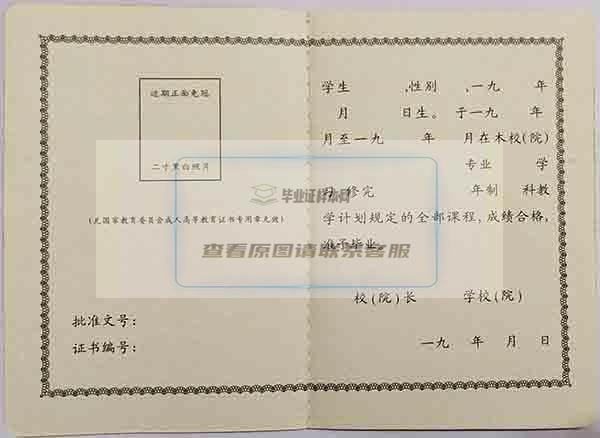 近期正面免冠
二寸黑白照片
(无国家教育委员会成人高等教育证书专用章无效)
批准文号:
证书编号:
学生 ,性别 ,一九 年
月 日生。于一九 年
月至一九 年 月在本校(院)
专业 学
习 修完 年制 科教
学计划规定的全部课程,成绩合格,
准予毕业。
校(院)长 学校(院)
一九 年 月 日
毕业证样本网
查看原图请联系客服